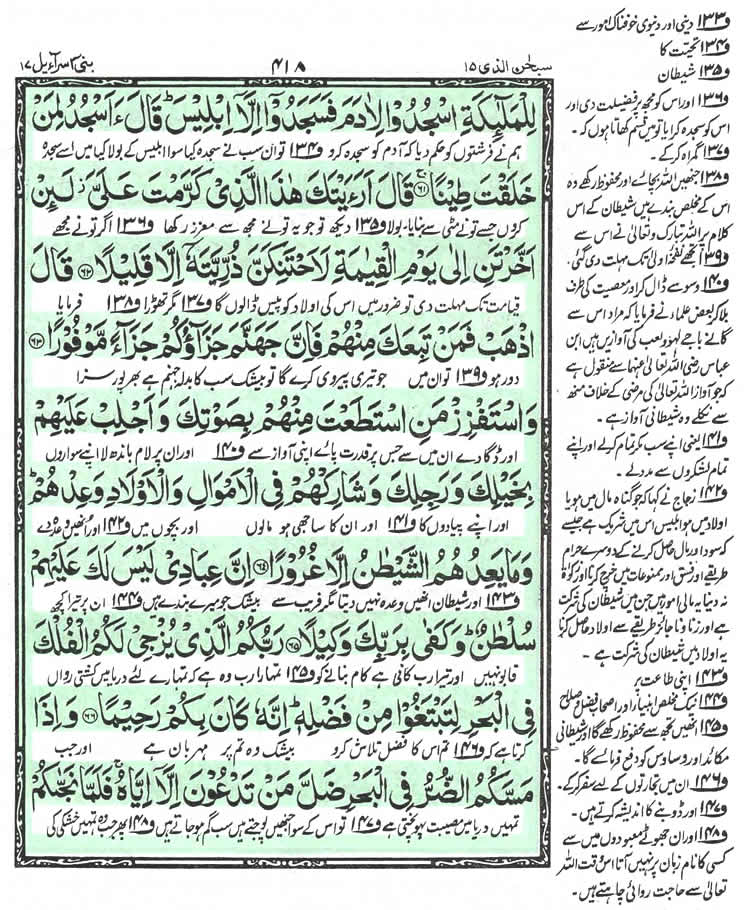 سبحٰن الذی ۱۵
۴۱۸
بنی اسرآءیل ۱۷
لِلْمَلٰٓئِكَةِ اسْجُدُوْا لِاٰدَمَ فَسَجَدُوْۤا اِلَّاۤ اِبْلِیْسَ ؕ قَالَ ءَاَسْجُدُ لِمَنْ
ہم نے فرشتوں کو حکم دیا کہ آدم کو سجدہ کرو و۱۳۴ تو ان سب نے سجدہ کیا سوا ابلیس کے بولا کیا میں اسے سجدہ
خَلَقْتَ طِیْنًا ۚ﴿۶۱﴾ قَالَ اَرَءَیْتَكَ هٰذَا الَّذِیْ كَرَّمْتَ عَلَیَّ ۫ لَئِنْ
کروں جسے تونے مٹی سے بنایا۔ بولا و۱۳۵ دیکھ تو جو یہ تونے مجھ سے معزز رکھا و۱۳۶ اگر تونے مجھے
اَخَّرْتَنِ اِلٰی یَوْمِ الْقِیٰمَةِ لَاَحْتَنِكَنَّ ذُرِّیَّتَهٗۤ اِلَّا قَلِیْلًا ﴿۶۲﴾ قَالَ
قیامت تک مہلت دی تو ضرور میں اس کی اولاد کو پیس ڈالوں گا و۱۳۷ مگر تھوڑا و۱۳۸ فرمایا
اذْهَبْ فَمَنْ تَبِعَكَ مِنْهُمْ فَاِنَّ جَهَنَّمَ جَزَآؤُكُمْ جَزَآءً مَّوْفُوْرًا ﴿۶۳﴾
دور ہو و۱۳۹ تو ان میں جو تیری پیروی کرے گا تو بیشک سب کا بدلہ جہنم ہے بھرپور سزا
وَ اسْتَفْزِزْ مَنِ اسْتَطَعْتَ مِنْهُمْ بِصَوْتِكَ وَ اَجْلِبْ عَلَیْهِمْ
اور ڈگا دے ان میں سے جس پر قدرت پائے اپنی آواز سے و۱۴۰ اور ان پر لام باندھ لا اپنے سواروں
بِخَیْلِكَ وَ رَجِلِكَ وَ شَارِكْهُمْ فِی الْاَمْوَالِ وَ الْاَوْلَادِ وَعِدْهُمْ ؕ
اور اپنے پیادوں کا و۱۴۱ اور ان کا ساجھی ہو مالوں اور بچوں میں و۱۴۲ اور انھیں وعدے
وَ مَا یَعِدُهُمُ الشَّیْطٰنُ اِلَّا غُرُوْرًا ﴿۶۴﴾ اِنَّ عِبَادِیْ لَیْسَ لَكَ عَلَیْهِمْ
و۱۴۳ اور شیطان انھیں وعدہ نہیں دیتا مگر فریب سے بیشک جو میرے بندے ہیں و۱۴۴ ان پر تیرا کچھ
سُلْطٰنٌ ؕ وَ كَفٰی بِرَبِّكَ وَكِیْلًا ﴿۶۵﴾ رَبُّكُمُ الَّذِیْ یُزْجِیْ لَكُمُ الْفُلْكَ
قابو نہیں اور تیرا رب کافی ہے کام بنانے کو و۱۴۵ تمھارا رب وہ ہے کہ تمہارے لئے دریا میں کشتی رواں
فِی الْبَحْرِ لِتَبْتَغُوْا مِنْ فَضْلِهٖ ؕ اِنَّهٗ كَانَ بِكُمْ رَحِیْمًا ﴿۶۶﴾ وَ اِذَا
کرتا ہے کہ و۱۴۶ تم اس کا فضل تلاش کرو بیشک وہ تم پر مہربان ہے اور جب
مَسَّكُمُ الضُّرُّ فِی الْبَحْرِ ضَلَّ مَنْ تَدْعُوْنَ اِلَّاۤ اِیَّاهُ ۚ فَلَمَّا نَجّٰىكُمْ
تمہیں دریا میں مصیبت پہونچتی ہے و۱۴۷ تو اس کے سوا جنھیں پوجتے ہیں سب گم ہوجاتے ہیں و۱۴۸ پھر جب وہ تمہیں خشکی کی
و۱۳۳ دینی اور دنیوی خوفناک امور سے
و۱۳۴ تحیّت کا
و۱۳۵ شیطان
و۱۳۶ اور اس کو مجھ پر فضیلت دی اور
اس کو سجدہ کرایا تو میں قسم کھاتا ہوں کہ۔
و۱۳۷ گمراہ کرکے۔
و۱۳۸ جنھیں اللہ بچائے اور محفوظ رکھے وہ
اس کے مخلص بندے ہیں شیطان کے اس
کلام پر اللہ تبارک و تعالیٰ نے اس سے
و۱۳۹ تجھے نفخۂ اولیٰ تک مہلت دی گئی۔
و۱۴۰ وسوسے ڈال کر اور معصیت کی طرف
بلا کر بعض علماء نے فرمایا کہ مراد اس سے
گانے باجے لہو و لعب کی آوازیں ہیں ابن
عباس رضی اللہ تعالیٰ عنہما سے منقول ہے
کہ جو آواز اللہ تعالیٰ کی مرضی کے خلاف منھ
سے نکلے وہ شیطانی آواز ہے۔
و۱۴۱ یعنی اپنے سب مکر تمام کرلے اور اپنے
تمام لشکروں سے مدد لے۔
و۱۴۲ زجاج نے کہا کہ جو گناہ مال میں ہو یا
اولاد میں ہو ابلیس اس میں شریک ہے جیسے
کہ سود اور مال حاصل کرنے کے دوسرے حرام
طریقے اور فسق اور ممنوعات میں خرچ کرنا اور زکوٰۃ
نہ دینا یہ مالی امور ہیں جن میں شیطان کی شرکت
ہے اور زنا و ناجائز طریقے سے اولاد حاصل کرنا
یہ اولاد میں شیطان کی شرکت ہے۔
و۱۴۳ اپنی طاعت پر
و۱۴۴ نیک مخلص انبیاء اور اصحاب فضل و صلاح
و۱۴۵ انھیں تجھ سے محفوظ رکھے گا اور شیطانی
مکائد اور وساوس کو دفع فرمائے گا۔
و۱۴۶ ان میں تجارتوں کے لئے سفر کرکے۔
و۱۴۷ اور ڈوبنے کا اندیشہ کرتے ہیں۔
و۱۴۸ اور ان جھوٹے معبودوں میں سے
کسی کا نام زبان پر نہیں آتا اس وقت اللہ
تعالیٰ سے حاجت روائی چاہتے ہیں۔